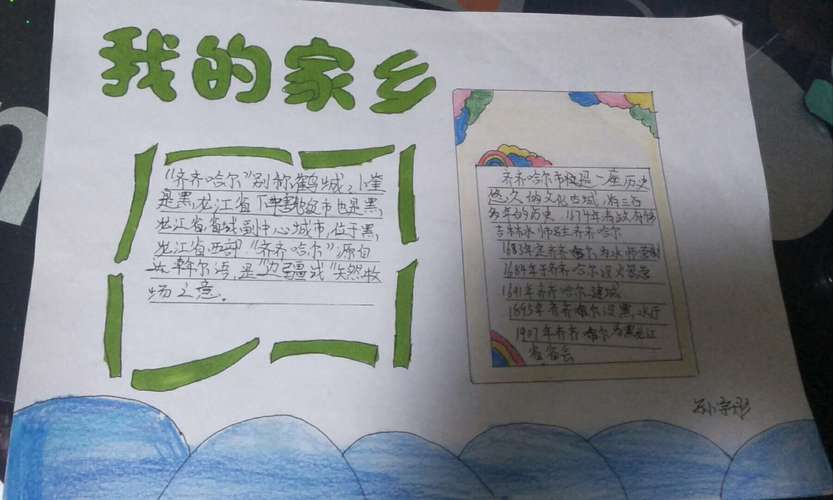 我的家乡
"齐齐哈尔"别称鹤城,
是黑龙江省下辖地级市也是黑
龙江省省域副中心城市,位于黑
龙江省西部"齐齐哈尔"源自
达斡尔语,是"边疆"或"天然牧
场之意。
齐齐哈尔市是一座历史
悠久的文化古城,有三百
多年的历史 1674年
吉林水师 齐齐哈尔
1683年 齐齐哈尔为水师营
1684年于齐齐哈尔设火器营
1691年齐齐哈尔建城
1895年齐齐哈尔设黑水厅
1907年齐齐哈尔为黑龙江
省省会
孙宇彤